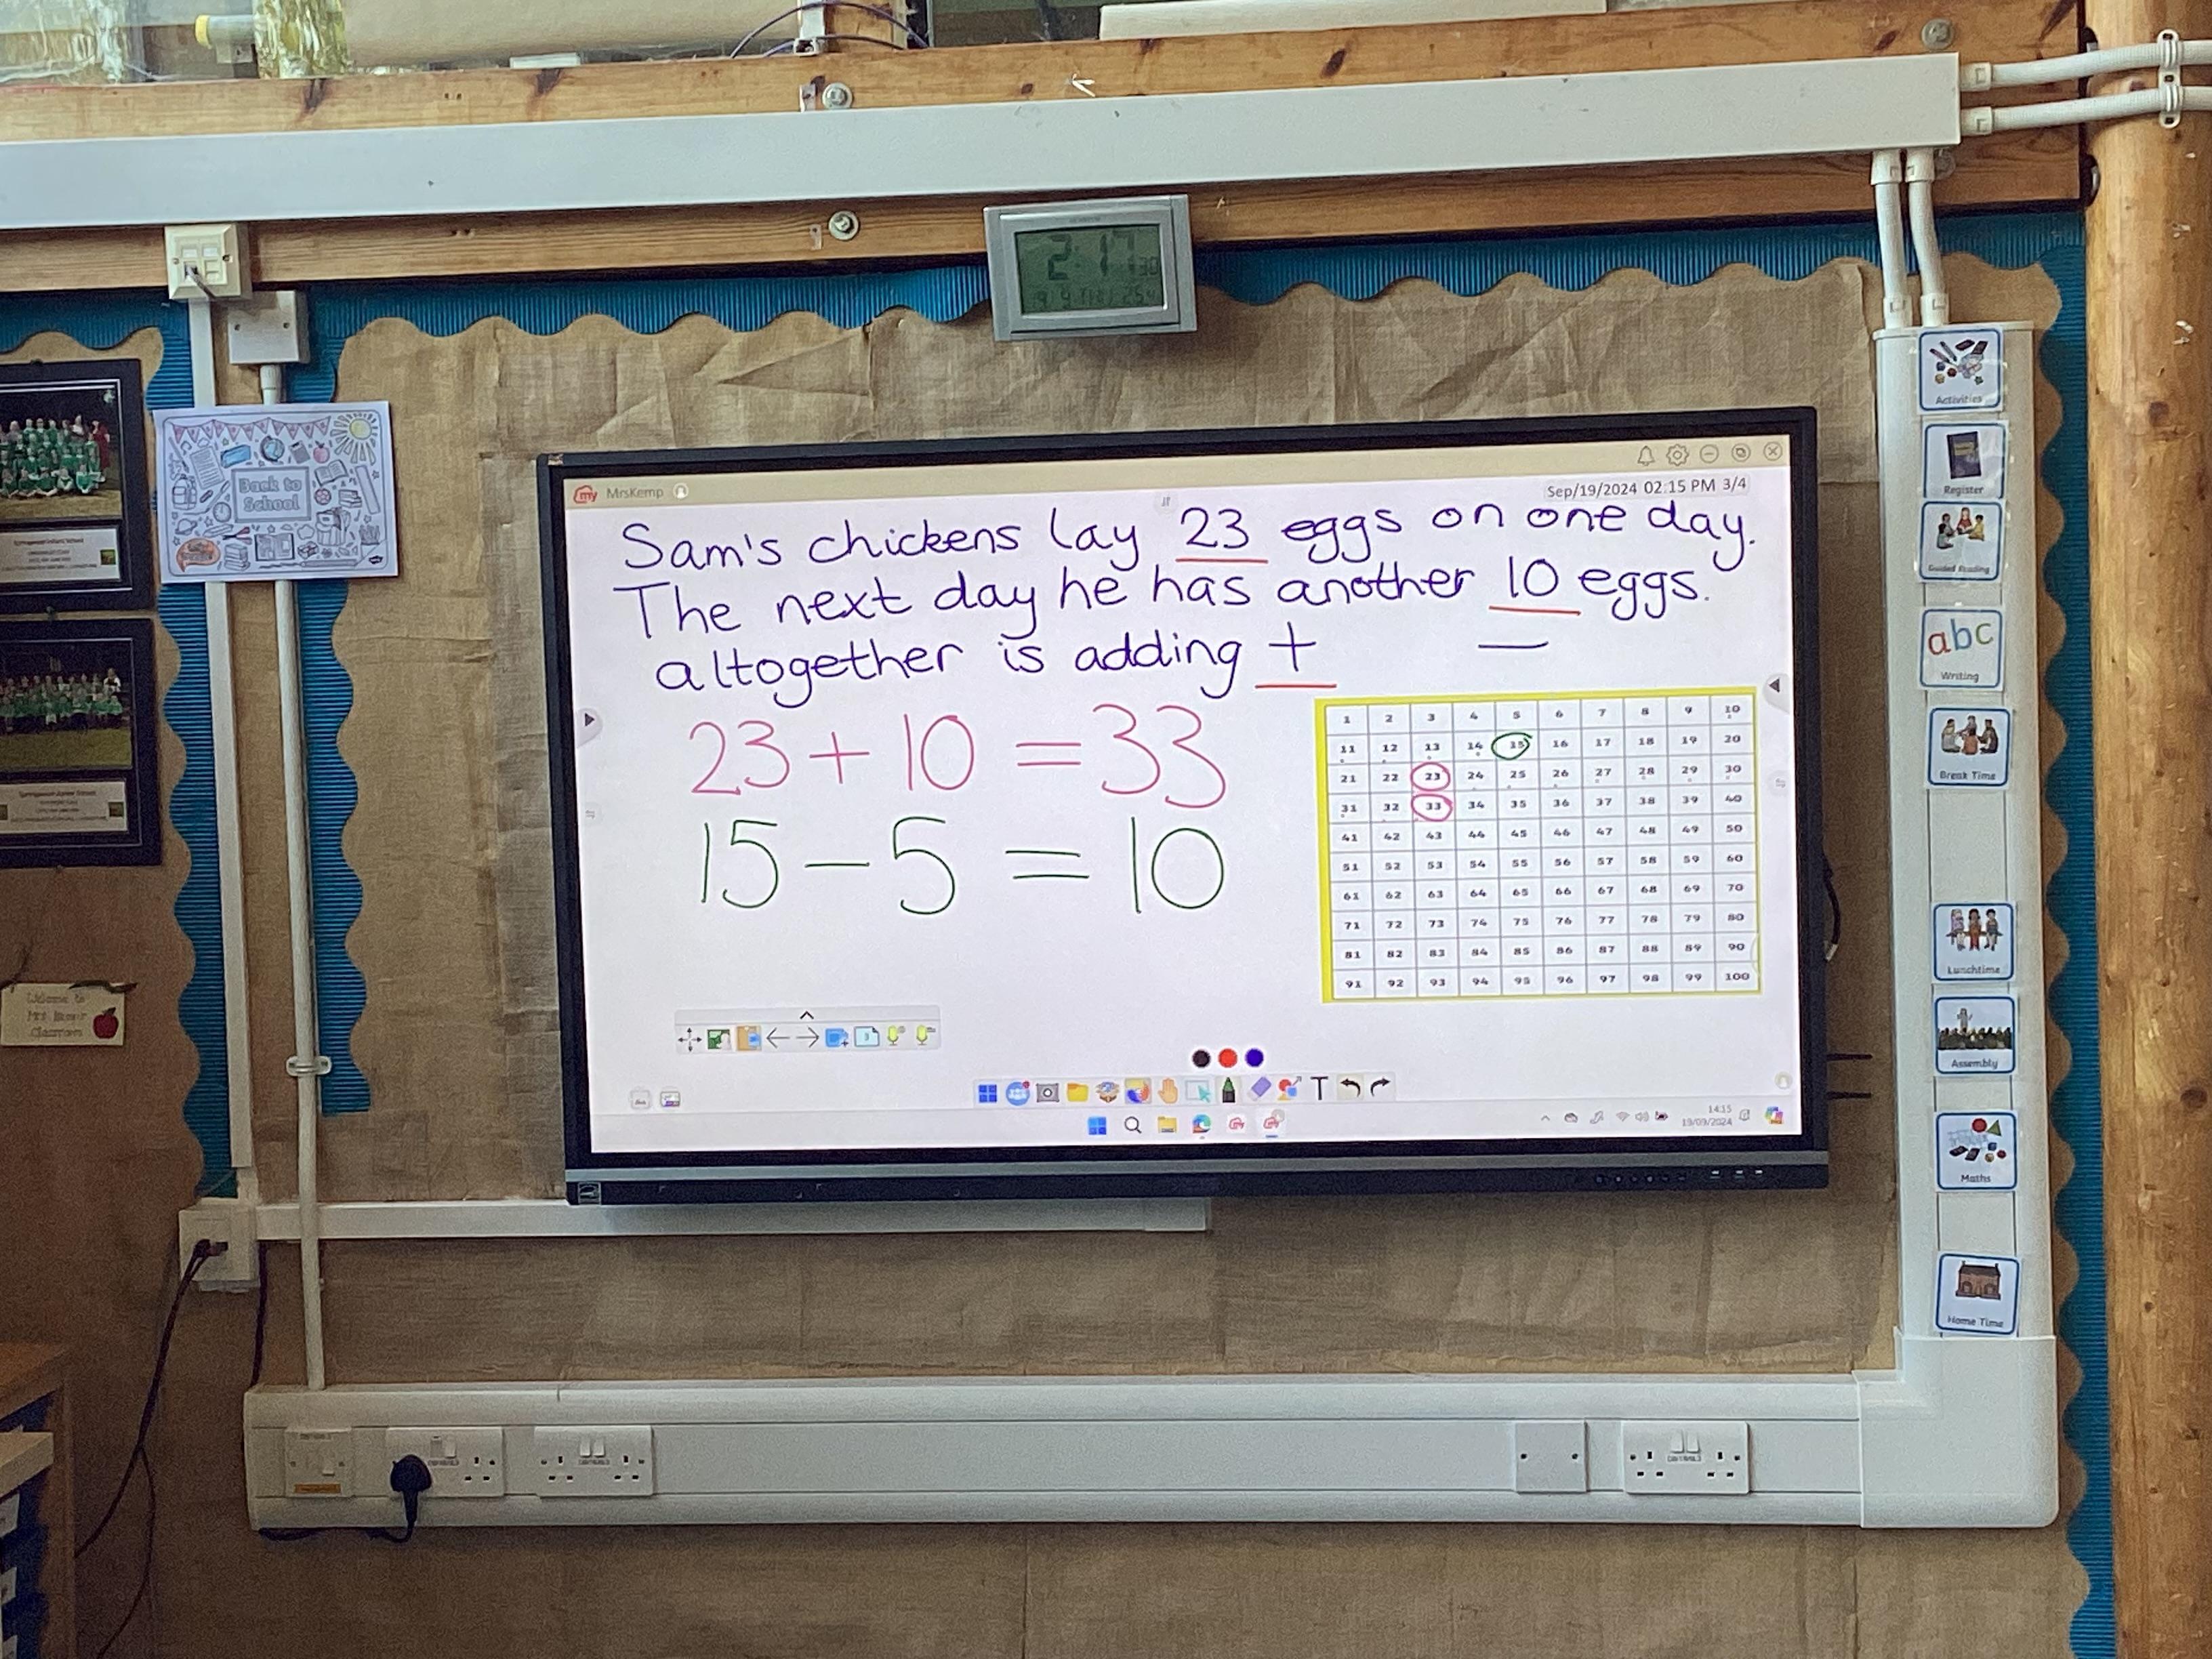 2:17 30
Back to
School
my MrsKemp
Sep/19/2024 02:15 PM 3/4
Sam's chickens lay 23 eggs on one day.
The next day he has another 10 eggs.
altogether is adding + —
23 + 10 = 33
15 − 5 = 10
1 2 3 4 5 6 7 8 9 10
11 12 13 14 15 16 17 18 19 20
21 22 23 24 25 26 27 28 29 30
31 32 33 34 35 36 37 38 39 40
41 42 43 44 45 46 47 48 49 50
51 52 53 54 55 56 57 58 59 60
61 62 63 64 65 66 67 68 69 70
71 72 73 74 75 76 77 78 79 80
81 82 83 84 85 86 87 88 89 90
91 92 93 94 95 96 97 98 99 100
T
14:15
19/09/2024
Activities
Register
Guided Reading
abc
Writing
Break Time
Lunchtime
Assembly
Maths
Home Time
Welcome to
Mrs
Classroom